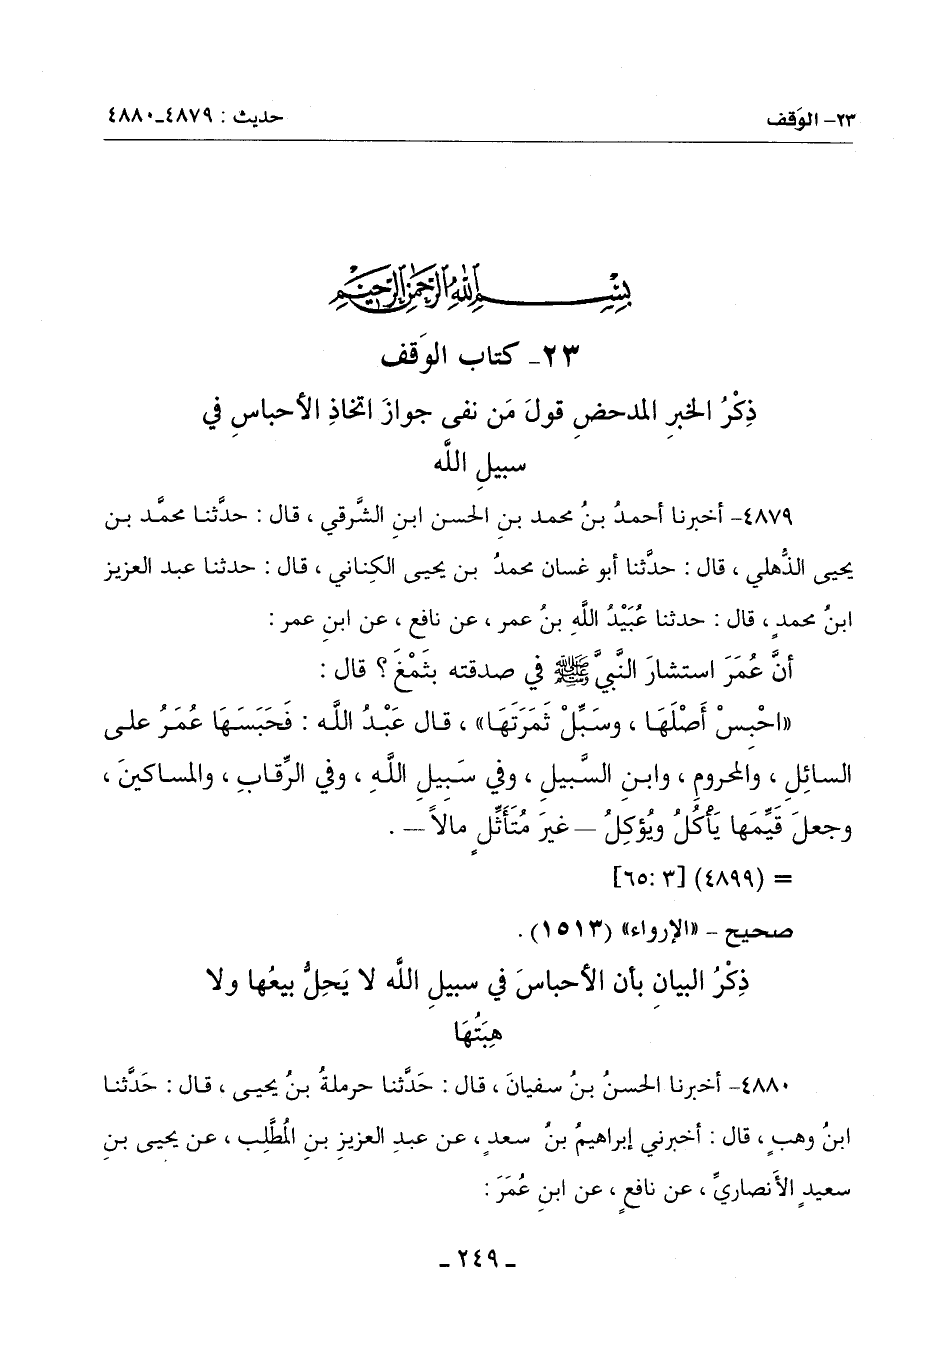 ٢٣- الوَقف
حديث : ٤٨٧٩-٤٨٨٠
بسم الله الرحمن الرحيم
٢٣- كتاب الوَقف
ذِكْرُ الخبرِ المدحضِ قولَ مَن نفى جوازَ اتخاذِ الأحباسِ في
سبيلِ اللَّه
٤٨٧٩- أخبرنا أحمدُ بنُ محمد بنِ الحسن ابنِ الشَّرقي ، قال : حدَّثنا محمَّد بن
يحيى الذُّهلي ، قال : حدَّثنا أبو غسان محمدُ بن يحيى الكِناني ، قال : حدثنا عبد العزيز
ابنُ محمدٍ ، قال : حدثنا عُبَيْدُ اللَّهِ بنُ عمر ، عن نافع ، عن ابنِ عمر :
أنَّ عُمَرَ استشارَ النَّبيَّ ﷺ في صدقته بثَمْغَ ؟ قال :
«احْبِسْ أَصْلَهَا ، وسَبِّلْ ثَمَرَتَهَا» ، قال عَبْدُ اللَّه : فَحَبَسَهَا عُمَرُ على
السائِلِ ، والمحرومِ ، وابنِ السَّبيلِ ، وفي سَبيلِ اللَّهِ ، وفي الرِّقابِ ، والمساكينَ ،
وجعلَ قَيِّمَها يَأْكُلُ ويُؤكِلُ — غيرَ مُتَأَثِّلٍ مالاً — .
= (٤٨٩٩) [٣ :٦٥]
صحيح - «الإرواء» (١٥١٣) .
ذِكْرُ البيانِ بأن الأحباسَ في سبيلِ اللَّه لا يَحِلُّ بيعُها ولا
هِبَتُهَا
٤٨٨٠- أخبرنا الحسنُ بنُ سفيانَ ، قال : حَدَّثنا حرملةُ بنُ يحيى ، قال : حَدَّثنا
ابنُ وهبٍ ، قال : أخبرني إبراهيمُ بنُ سعدٍ ، عن عبدِ العزيزِ بنِ المُطَّلِب ، عن يحيى بنِ
سعيدٍ الأَنصاريِّ ، عن نافعٍ ، عن ابنِ عُمَرَ :
- ٢٤٩ -